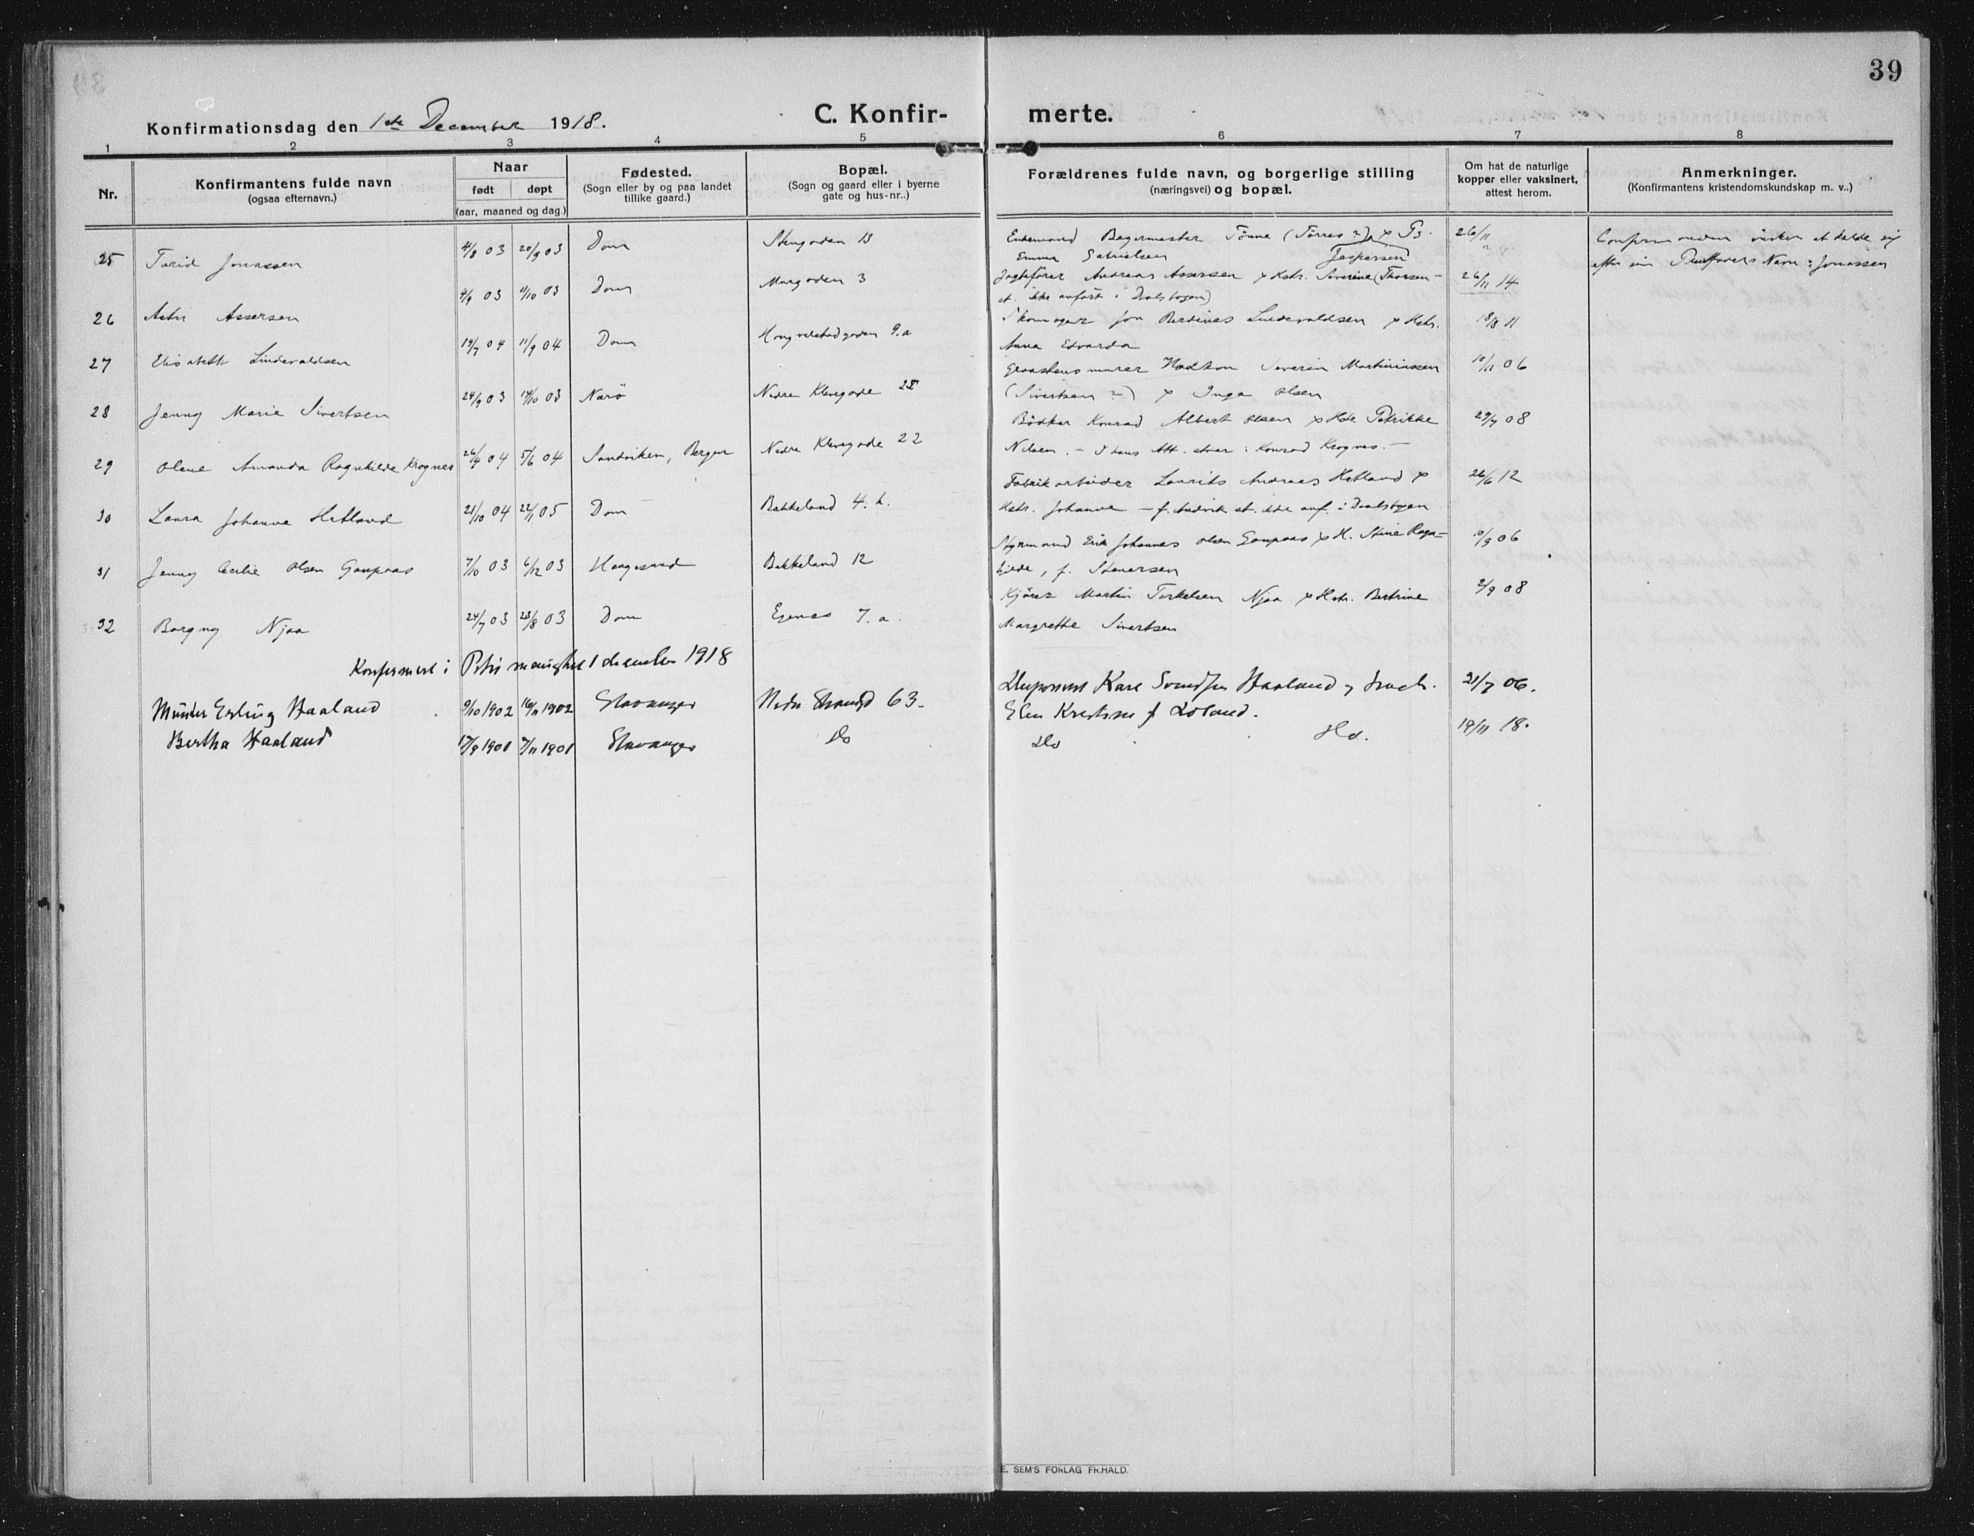 39
Konfirmationsdag den 1ste December 1918.
C. Konfirmerte.
1 2 3 4 5 6 7 8
Nr.
Konfirmantens fulde navn
(ogsaa efternavn.)
Naar
født døpt
(aar, maaned og dag.)
Fødested.
(Sogn eller by og paa landet
tillike gaard.)
Bopæl.
(Sogn og gaard eller i byerne
gate og hus-nr..)
Forældrenes fulde navn, og borgerlige stilling
(næringsvei) og bopæl.
Om hat de naturlige
kopper eller vaksinert,
attest herom.
Anmerkninger.
(Konfirmantens kristendomskundskap m. v..)
25 Torid Jonassen 4/8 03 20/9 03 Dom Stengaden 13
Enkemand Bagermester Tönne (Törres?) Jespersen
Emma Gabrielsen
26/11
Confirmanden ønsker at kalde sig
efter sin Navn: Jonassen
26 Astri Assersen 4/9 03 11/10 03 Dom Margaden 3
Jagtefører Andreas Assersen x Hstr. Severine (Thorsen
et. ikke anført i Daabsbogen)
26/11 14
27 Elisabeth Lindevaldsen 19/7 04 11/9 04 Dom Hongvelstadgaden 9.a
Skomager Jon Berdines Lindevaldsen x Hstr.
Anna Edvarda
18/8 11
28 Jenny Marie Sivertsen 24/9 03 14/10 03 Narö Nedre Klevegade 22
Graastensmurer Severin Martiniussen
(Sivertsen?) x Inga Olsen
10/11 06
29 Olene Amanda Ragnhilde Krognes 26/4 04 5/6 04 Sandviken, Bergen Nedre Klevegade 22
Bödker Konrad Albert Olsen x Hstr. Petrikke
Nilsen. - I hans Att. staar: Konrad Krognes. -
29/7 08
30 Laura Johanna Hetland 21/10 04 22/1 05 Dom Bakkeland 4. h.
Fabrikarbeider Laurits Andreas Hetland x
Hstr. Johanne - f. Andvik et. ikke anf. i Daabsbogen
26/6 12
31 Jenny Cecilie Olsen Gaupaas 7/10 03 6/12 03 Haugesund Bakkeland 12
Styrmand Erik Johannes Olsen Gaupaas x H. Stine Ragn-
hilde, f. Stenersen
10/9 06
32 Borgny Njaa 24/7 03 23/8 03 Dom Egenes 7. a.
Kjører Martin Torkelsen Njaa x Hstr. Bertine
Margrethe Sivertsen
2/9 08
Konfirmert i Petri menighet 1 december 1918
Münter Erling Haaland 9/10 1902 16/11 1902 Stavanger Nedre Strandgd 63.
Karl Svendsen Haaland
Elen Kristine f Loland.
21/7 06.
Bertha Haaland 17/9 1901 7/11 1901 Stavanger Do
Do
19/11 18.
E. SEM'S FORLAG FR.HALD.